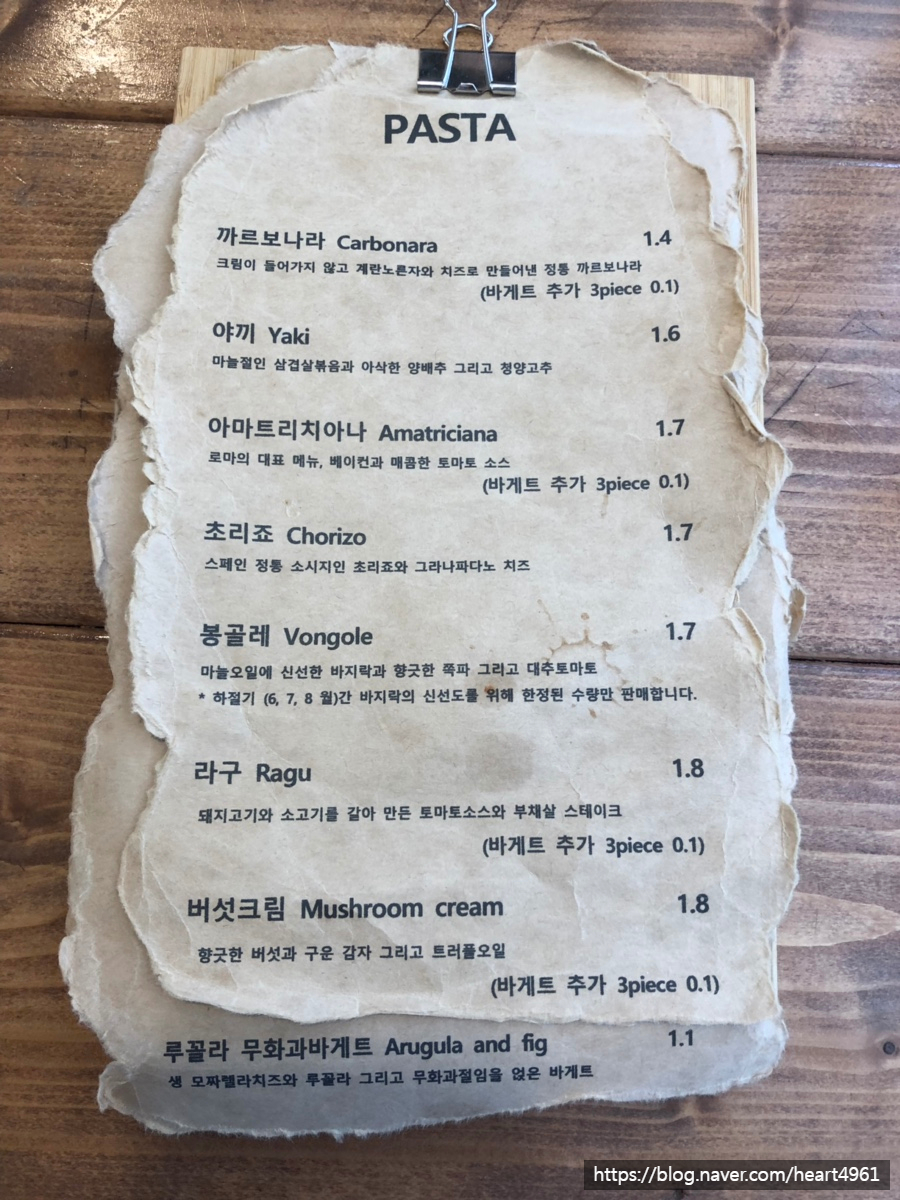 PASTA
까르보나라 Carbonara 1.4
크림이 들어가지 않고 계란노른자와 치즈로 만들어낸 정통 까르보나라
(바게트 추가 3piece 0.1)
야끼 Yaki 1.6
마늘절인 삼겹살볶음과 아삭한 양배추 그리고 청양고추
아마트리치아나 Amatriciana 1.7
로마의 대표 메뉴, 베이컨과 매콤한 토마토 소스
(바게트 추가 3piece 0.1)
초리죠 Chorizo 1.7
스페인 정통 소시지인 초리죠와 그라나파다노 치즈
봉골레 Vongole 1.7
마늘오일에 신선한 바지락과 향긋한 쪽파 그리고 대추토마토
* 하절기 (6, 7, 8 월)간 바지락의 신선도를 위해 한정된 수량만 판매합니다.
라구 Ragu 1.8
돼지고기와 소고기를 갈아 만든 토마토소스와 부채살 스테이크
(바게트 추가 3piece 0.1)
버섯크림 Mushroom cream 1.8
향긋한 버섯과 구운 감자 그리고 트러플오일
(바게트 추가 3piece 0.1)
루꼴라 무화과바게트 Arugula and fig 1.1
생 모짜렐라치즈와 루꼴라 그리고 무화과절임을 얹은 바게트
https://blog.naver.com/heart4961